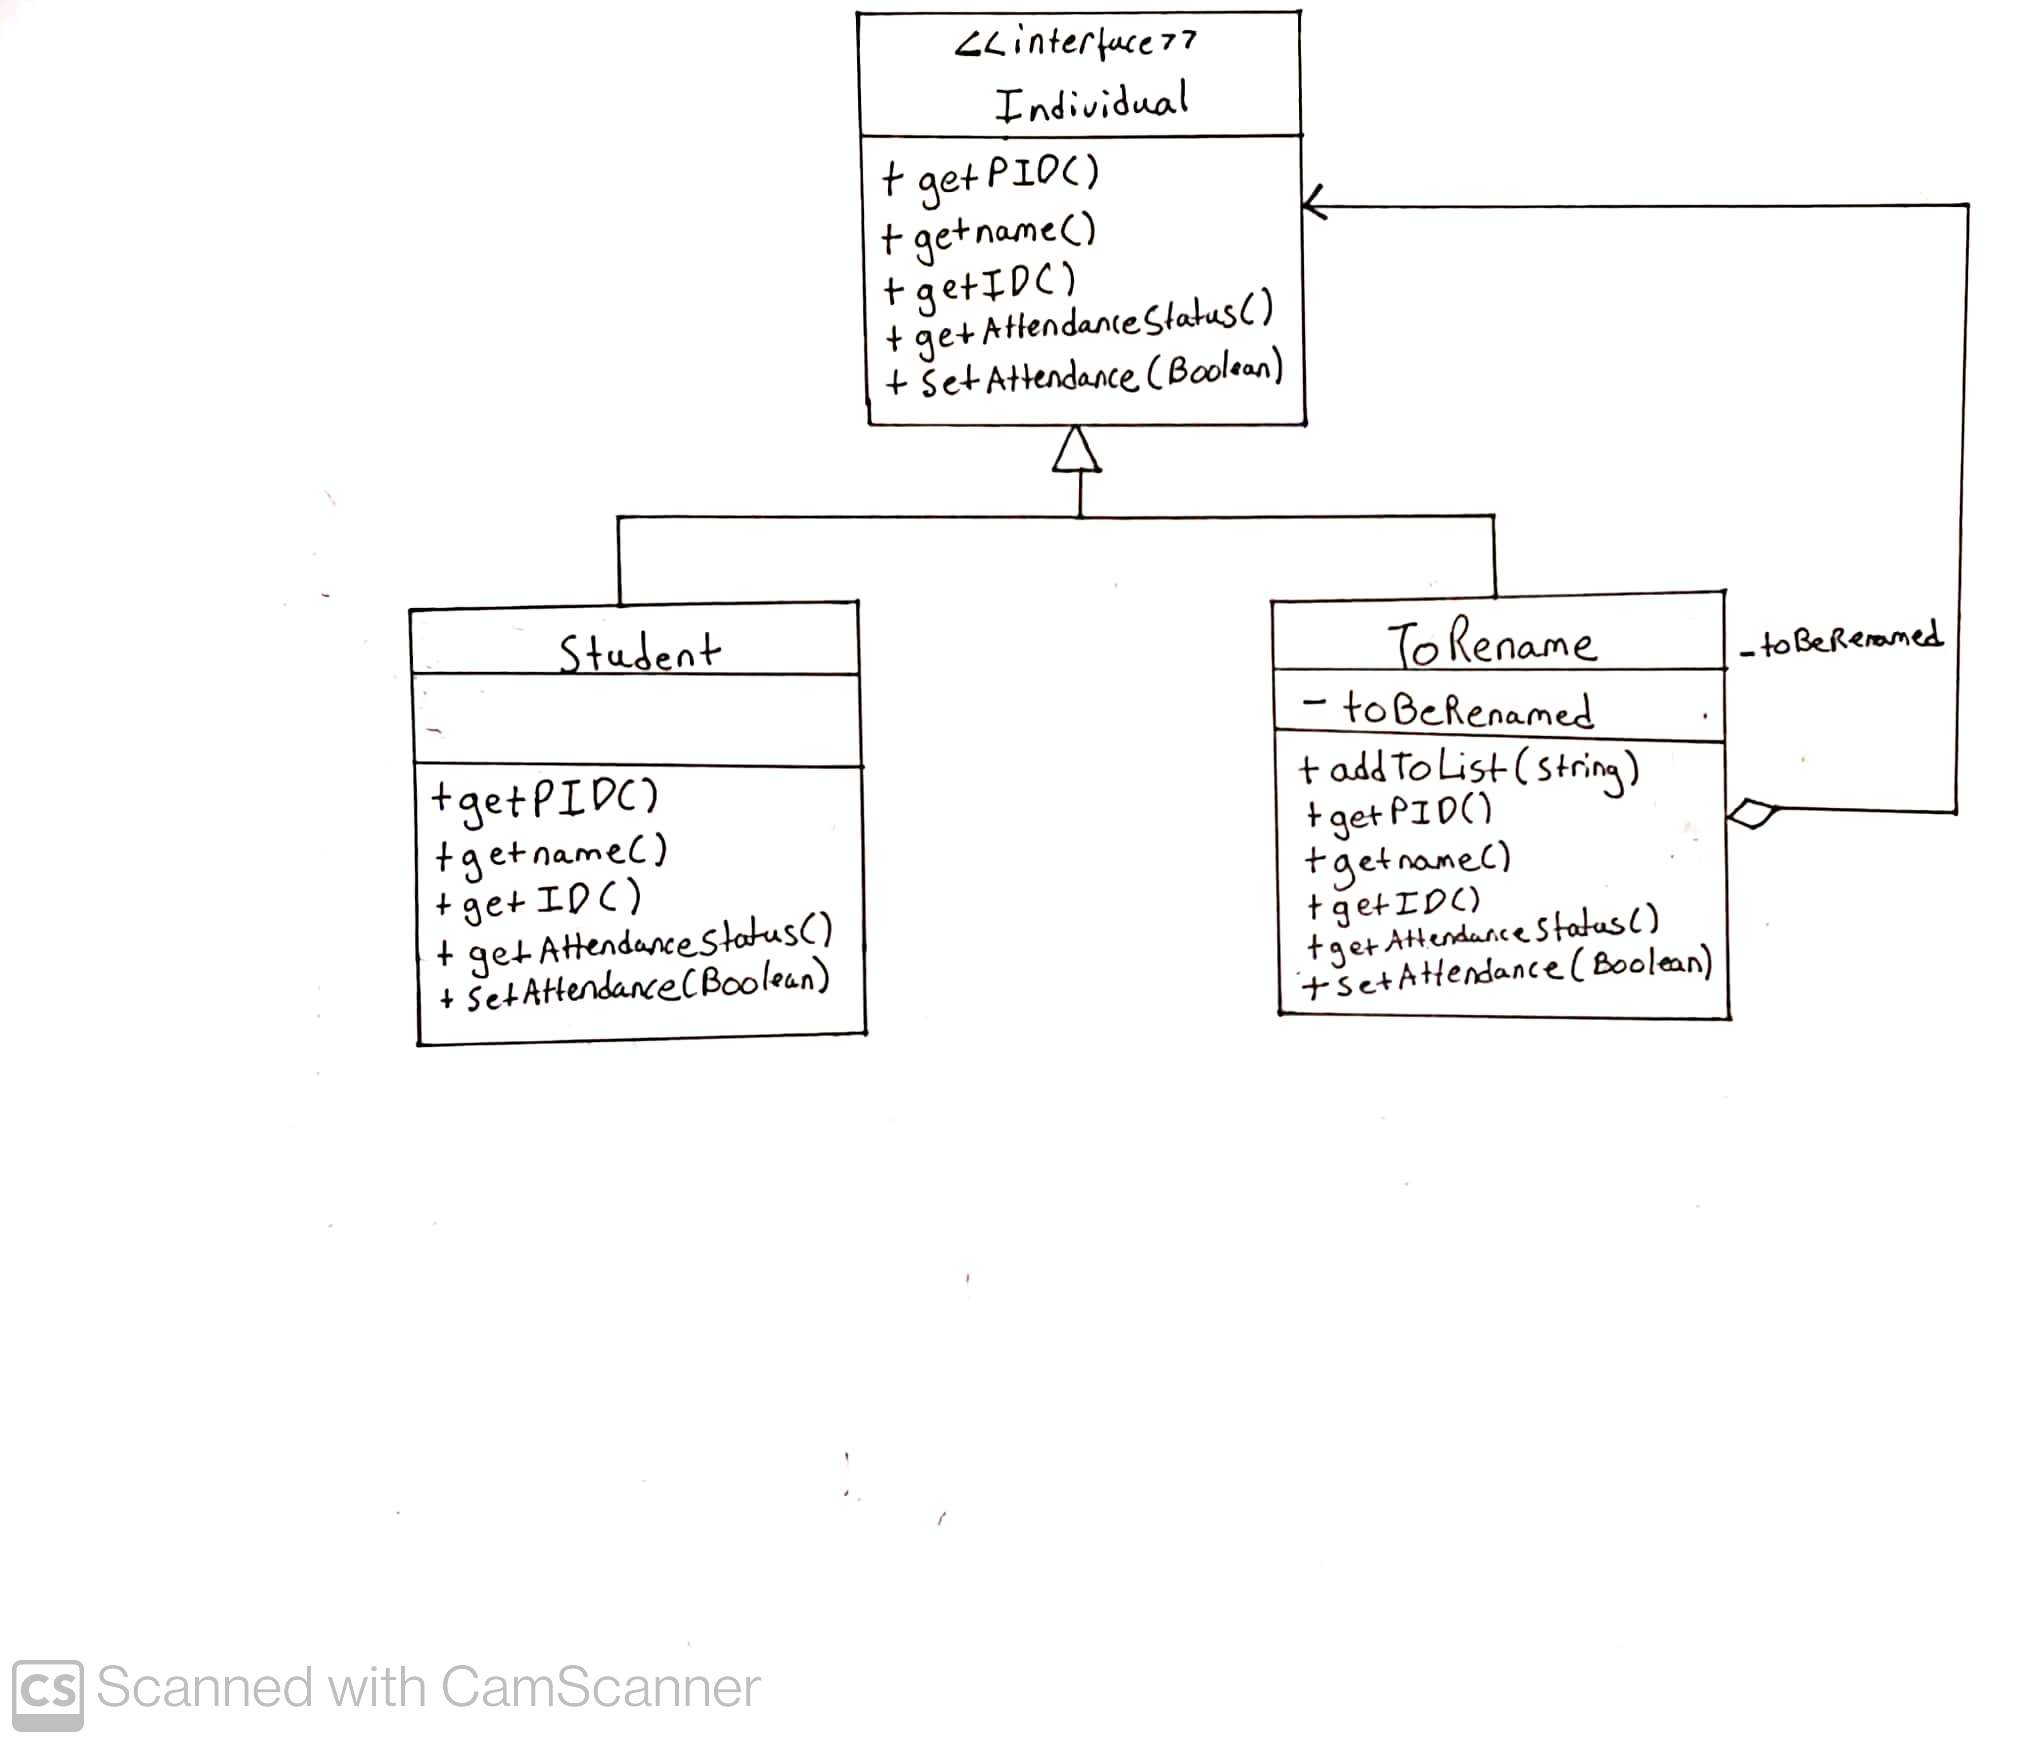 <<interface>>
Individual
+ getPID()
+ getname()
+ getID()
+ getAttendanceStatus()
+ SetAttendance(Boolean)
Student
+getPID()
+getname()
+ getID()
+ getAttendanceStatus()
+ SetAttendance(Boolean)
ToRename
- toBeRenamed
+ addToList(string)
+ getPID()
+getname()
+ getID()
+getAttendanceStatus()
+ setAttendance(Boolean)
- toBeRenamed
CS Scanned with CamScanner